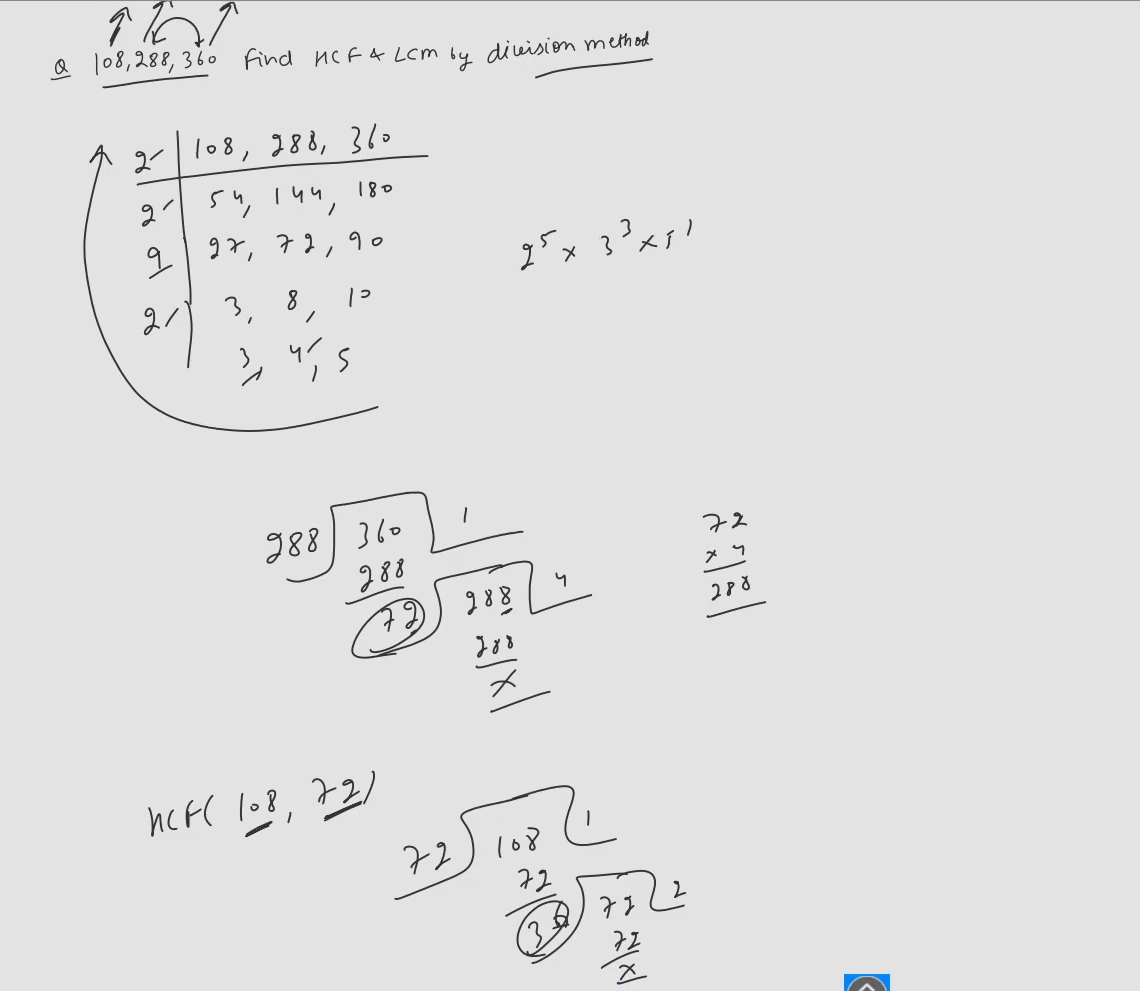 Q 108, 288, 360 Find HCF & LCM by division method
2 108, 288, 360
2 54, 144, 180
9 27, 72, 90
2⁵ × 3³ × 5¹
2 3, 8, 10
3, 4, 5
288 360 1
288
72 288 4
288
×
72
× 4
288
HCF( 108, 72)
72 108 1
72
36 72 2
72
×